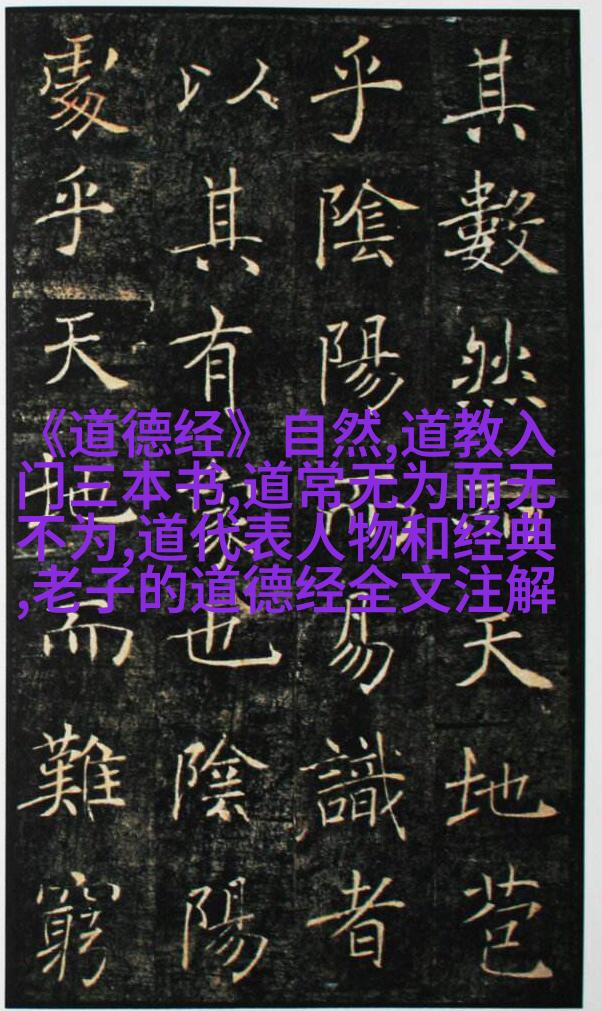 其數然而天地苞
乎陰陽而易識者
以其有象也陰陽
處乎天地而難窮
《道德经》自然,道教入
门三本书,道常无为而无
不为,道代表人物和经典
,老子的道德经全文注解